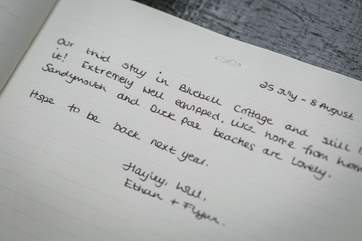 25 July - 8 August
Our third stay in Bluebell Cottage and still
it! Extremely well equipped, like home from home.
Sandymouth and Duck Pool beaches are lovely.
Hope to be back next year.
Hayley, Will,
Ethan + Flynn.